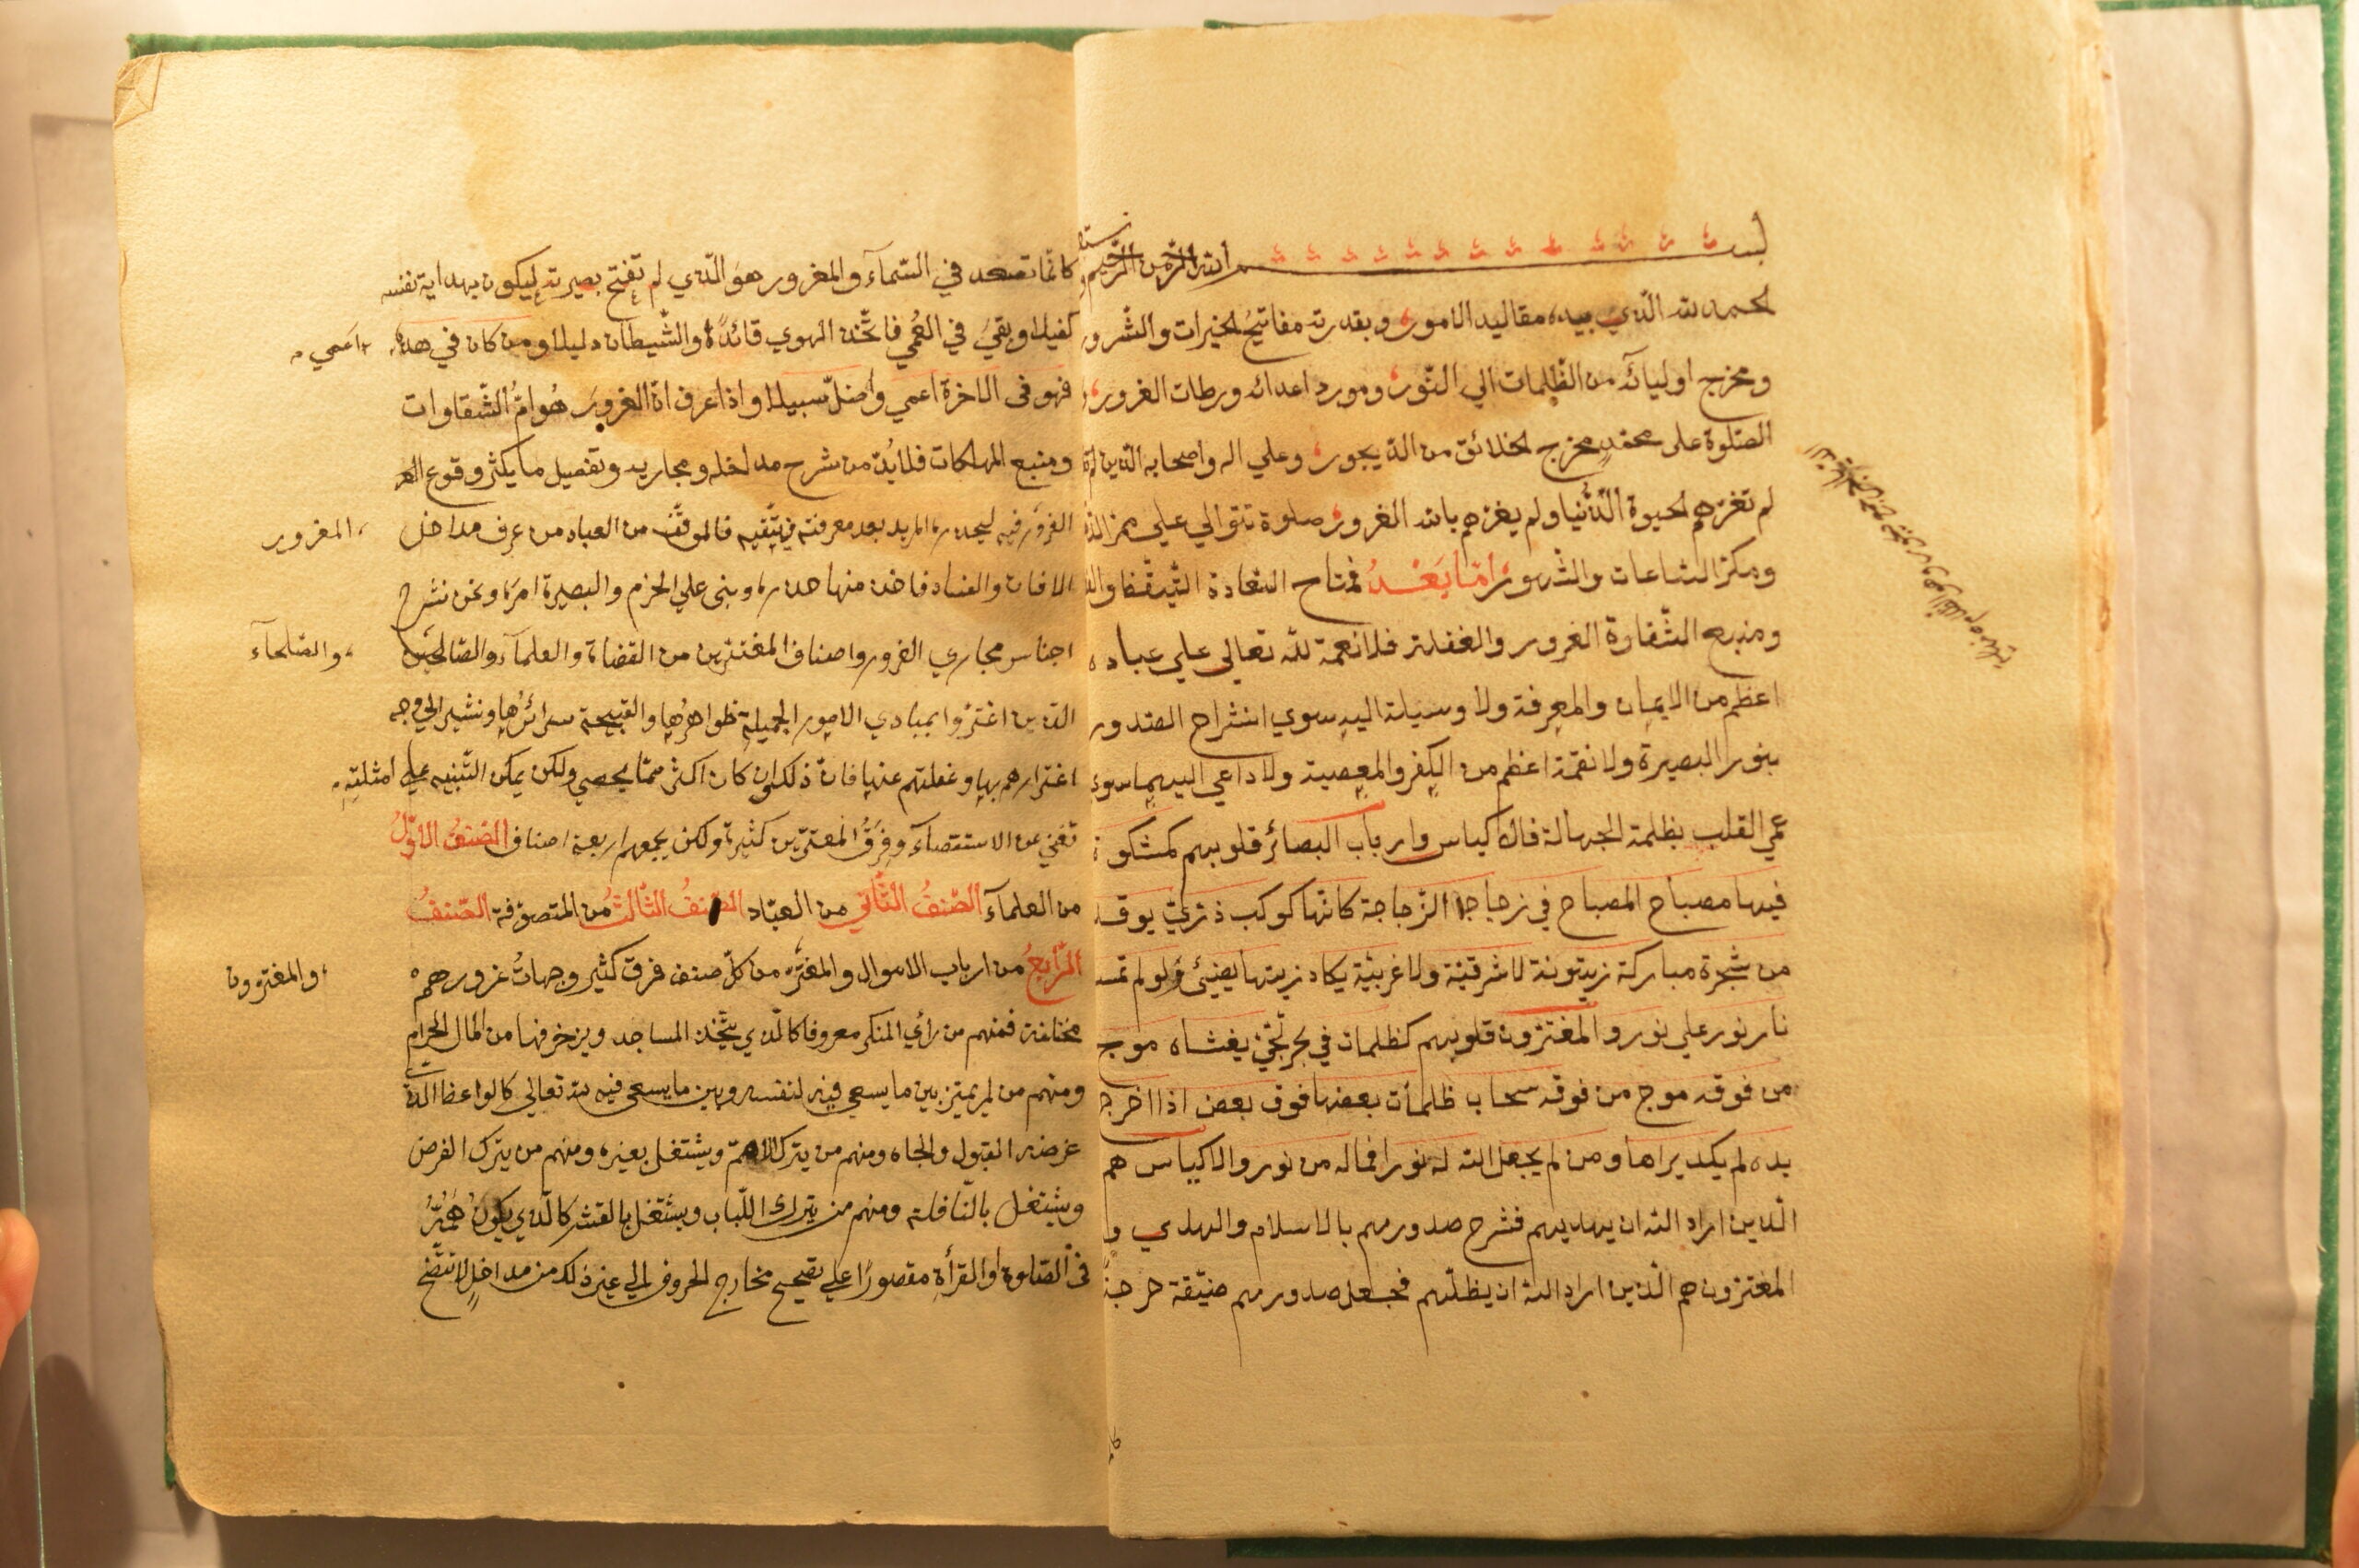 بسم الله الرحمن الرحيم
الحمد لله الذي بيده مقاليد الامور وبقدرته مفاتيح الخيرات والشرور
ومخرج اوليائه من الظلمات الي النور ومورد اعدائه ورطات الغرور
الصلوة على محمد مخرج الخلائق من الديجور وعلي اله واصحابه الذين
لم تغرهم الحيوة الدنيا ولم يغرهم بالله الغرور صلوة تتوالي علي ممر
ومكر الساعات والشهور اما بعد فمفتاح السعادة التيقظ
ومنبع الشقاوة الغرور والغفلة فلا نعمة لله تعالي علي عباده
اعظم من الايمان والمعرفة ولا وسيلة اليه سوي انشراح الصدور
بنور البصيرة ولا نقمة اعظم من الكفر والمعصية ولا داعي اليهما سوي
عمي القلب بظلمة الجهالة فالاكياس وارباب البصائر قلوبهم كمشكوة
فيها مصباح المصباح في زجاجة الزجاجة كانها كوكب دري يوقد
من شجرة مباركة زيتونة لا شرقية ولا غربية يكاد زيتها يضيئ ولو لم تمسسه
نار نور علي نور والمغترون قلوبهم كظلمات في بحر لجي يغشاه موج
من فوقه موج من فوقه سحاب ظلمات بعضها فوق بعض اذا اخرج
يده لم يكد يراها ومن لم يجعل الله له نورا فما له من نور والاكياس هم
الذين اراد الله ان يهديهم فشرح صدورهم بالاسلام والهدي و
المغترون هم الذين اراد الله ان يظلهم فجعل صدورهم ضيقة حرجة
كانما تصعد في السمآء والمغرور هو الذي لم تفتح بصيرته ليكون بهداية نفسه
كفيلا وبقي في العمي فاتخذ الهوي قائده والشيطان دليلا ومن كان في هذه اعمي
فهو في الاخرة اعمي واضل سبيلا واذا عرف ان الغرور هو ام الشقاوات
ومنبع المهلكات فلا بد من شرح مداخله ومجاريه وتفصيل ما يكثر وقوع
الغرور فيه ليحذره المريد بعد معرفته فيتقيه فالموفق من العباد من عرف مداخل
المغرور
الافات والفساد فاخذ منها حذره وبنى علي الحزم والبصيرة امره ونحن نشرح
اجناس مجاري الغرور واصناف المغترين من القضاة والعلمآء والصالحين
والصلحآء
الذين اغتروا بمبادي الامور الجميلة ظواهرها والقبيحة سرائرها ونشير الي وجه
اغترارهم بها وغفلتهم عنها فان ذلك وان كان اكثر مما يحصي ولكن يمكن التنبيه علي امثلته
تغني عن الاستقصآء وفرق المغترين كثيرة ولكن يجمعهم اربعة اصناف الصنف الاول
من العلمآء الصنف الثاني من العباد الصنف الثالث من المتصوفة الصنف
الرابع من ارباب الاموال والمغتره من كل صنف فرق كثير وجهات غرورهم
والمغترون
مختلفة فمنهم من رأي المنكر معروفا كالذي يتخذ المساجد ويزخرفها من المال الحرام
ومنهم من لم يميز بين ما يسعي فيه لنفسه وبين ما يسعي فيه لله تعالي كالواعظ الذي
غرضه القبول والجاه ومنهم من يترك الاهم ويشتغل بغيره ومنهم من يترك الفرض
ويشتغل بالنافلة ومنهم من يترك اللباب ويشتغل بالقشر كالذي يكون همه
في الصلوة والقرأة مقصورا علي تصحيح مخارج الحروف الي غير ذلك من مداخل لا تتضح